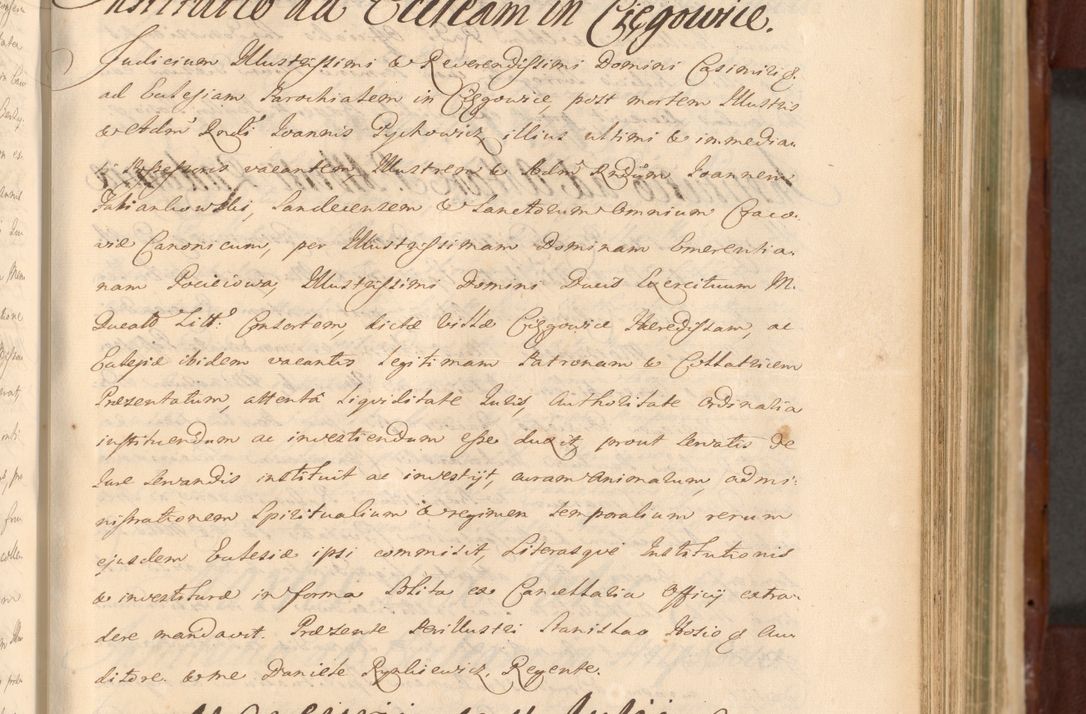 Institutio ad Eccleam in Cięgowice.
Judicium Illustrissimi & Reverendissimi Domini Casimiri &
ad Eclesiam Parochialem in Cięgowice, post mortem Illustris
& Adm Rndi Joannis Pychowicz illius ultimi & immedia-
ti possessoris vacantem Illustrem & Adm Rndum Joannem
Fabiankowski, Sandecensem & Sanctorum Omnium Craco-
viæ Canonicum, per Illustrissimam Dominam Emerentia-
nam Pociejowa, Illustrissimi Domini Ducis Exercituum M.
Ducatt Litt: Consortem, dictæ Villæ Cięgowice Heredissam, ac
Eclesiæ ibidem vacantis legitimam Patronam & Collatricem
Præzentatum, attentâ Liqviditate Juris, Authoritate Ordinaria
instituendum ac investiendum esse duxit, prout servatis de
Jure servandis instituit ac investijt, curam animarum, admi-
nistrationem Spiritualium & regimen temporalium rerum
ejusdem Eclesiæ ipsi commisit, Literasqve Institutionis
& investituræ in forma solita ex Cancellaria Officij extra-
dere mandavit. Præzente Perillustri Stanislao Hosio & Au-
ditore & me Daniele Rynkiewicz, Regente.